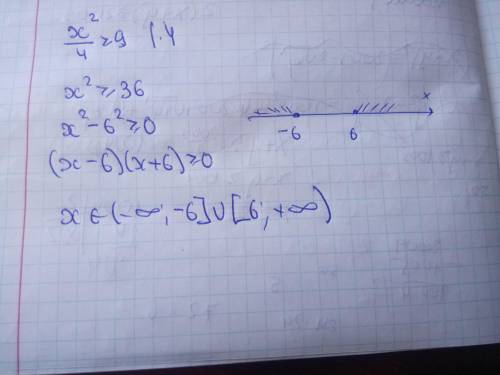 x²/4 ≥ 9 |·4
x² ≥ 36
x² - 6² ≥ 0
(x-6)(x+6) ≥ 0
x ∈ (-∞; -6] ∪ [6; +∞)
x
-6 6